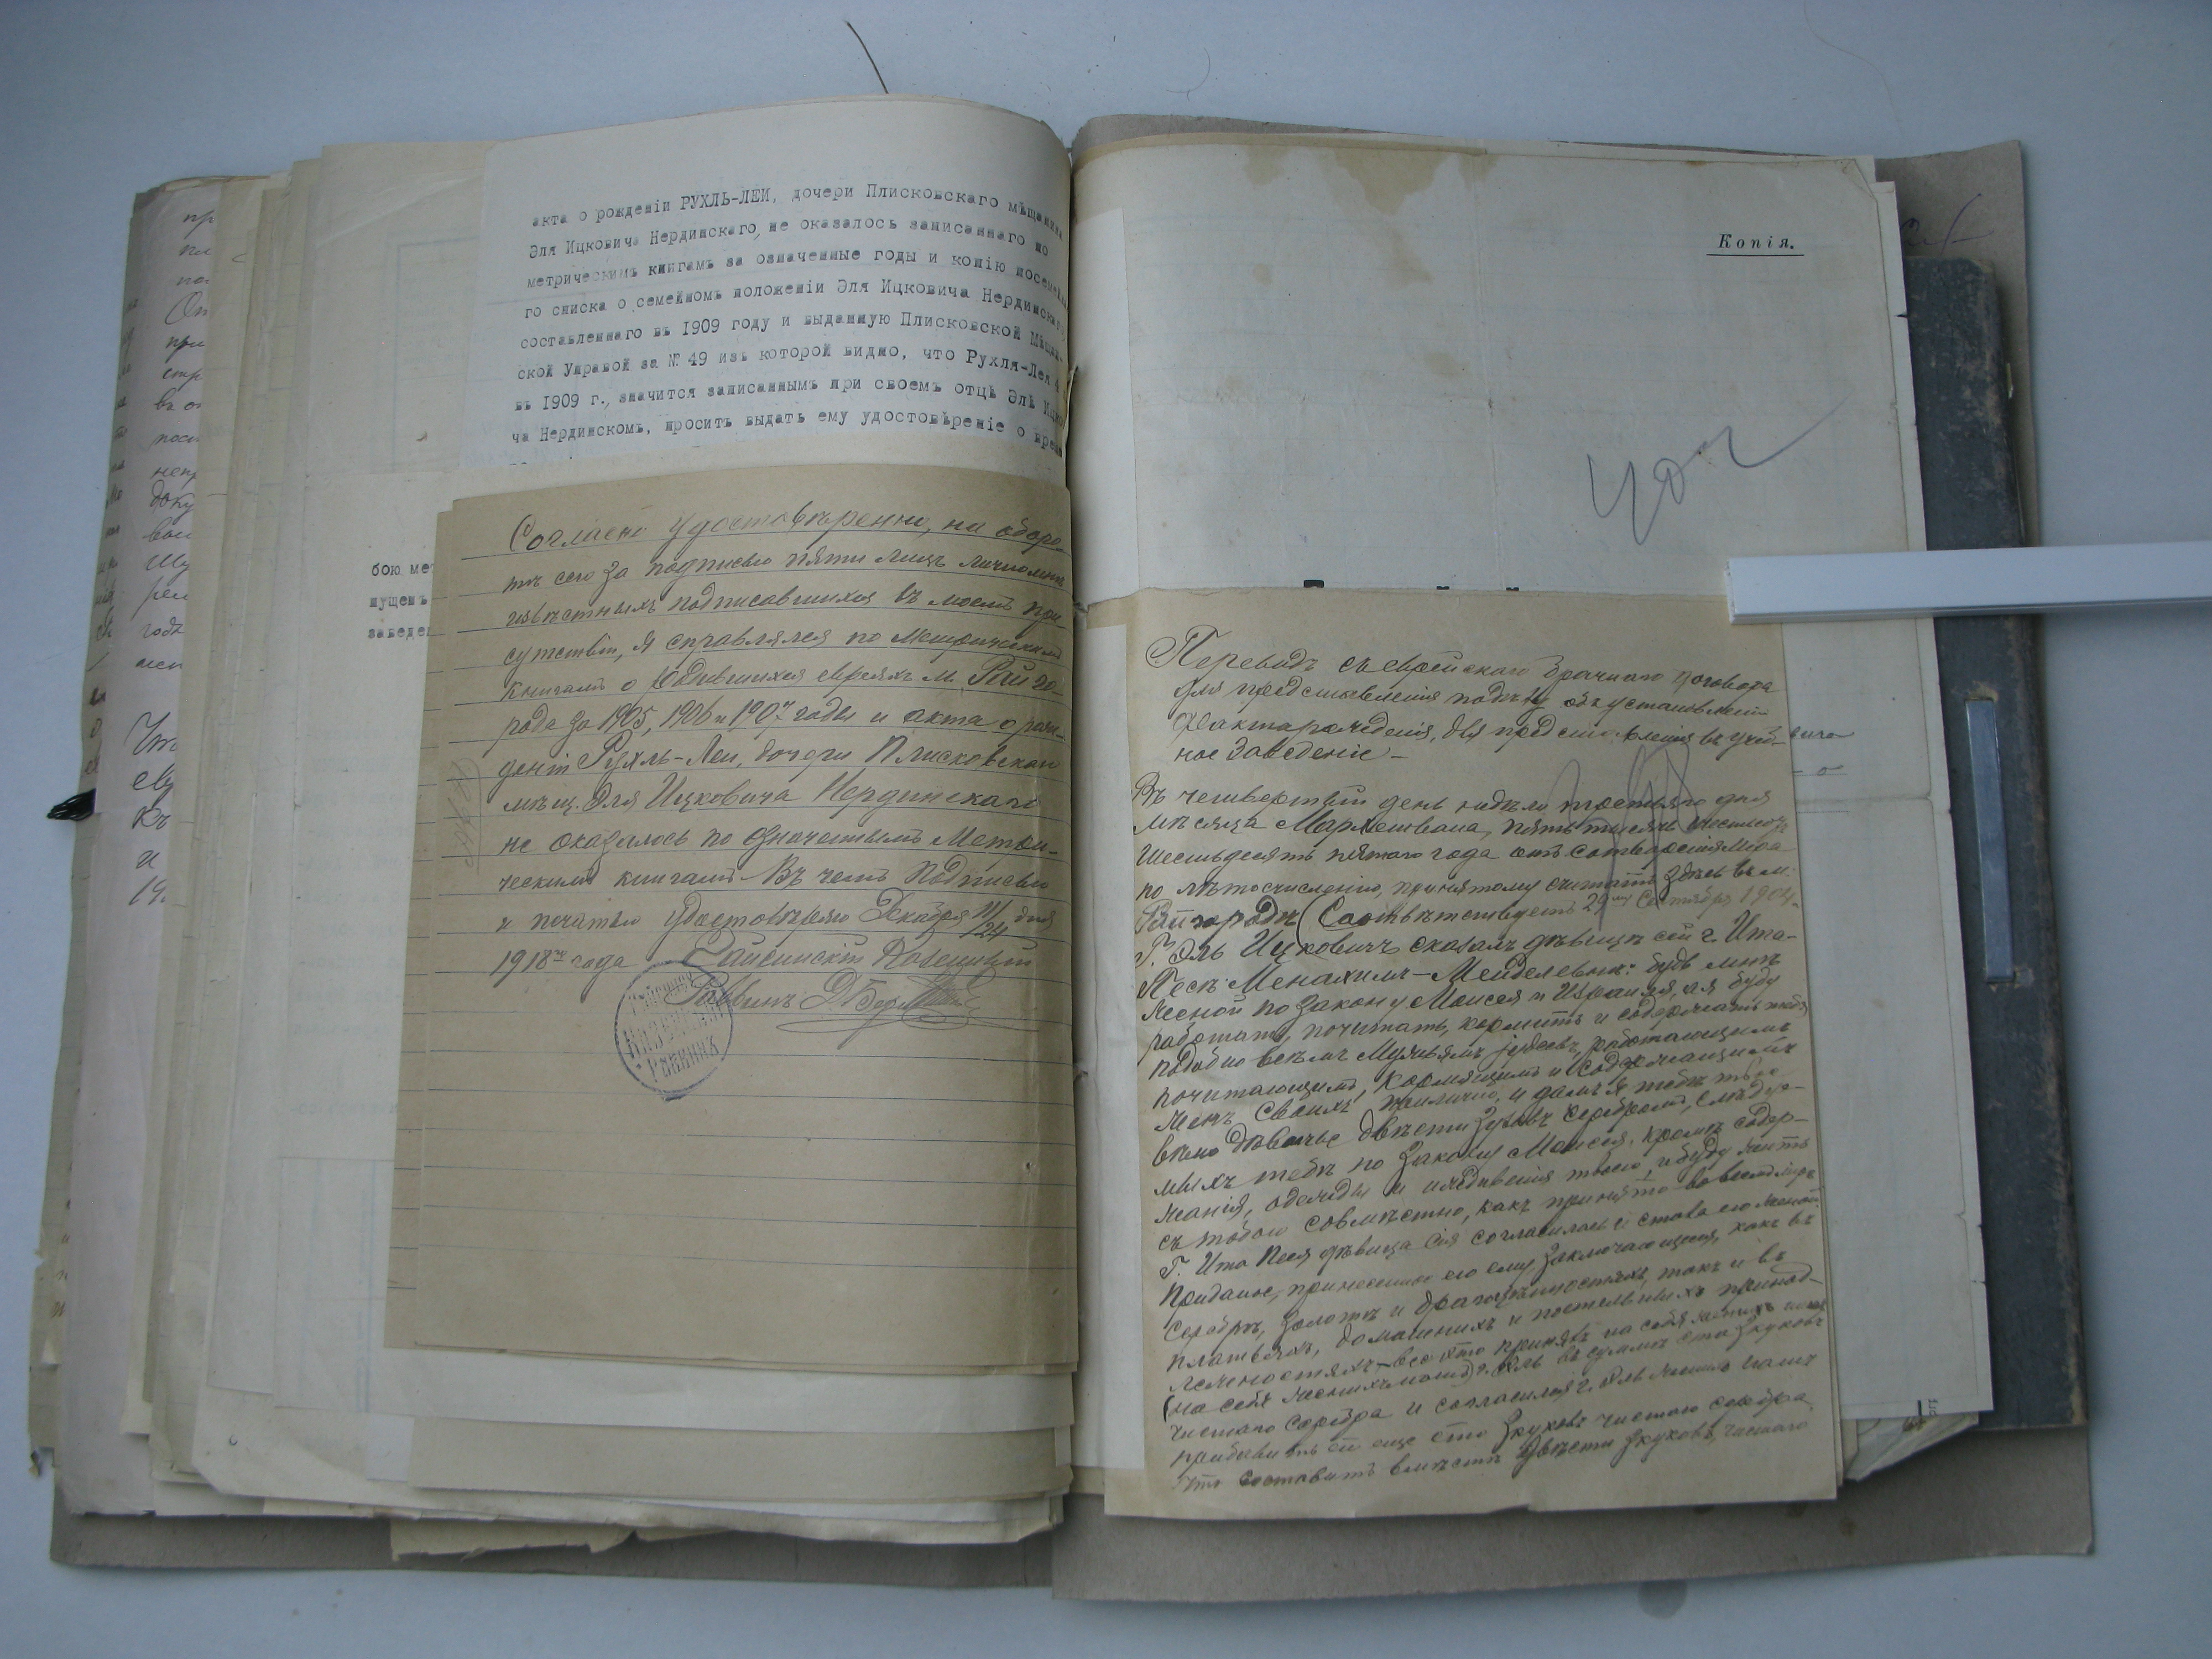 акта о рожденіи РУХЛЬ-ЛЕИ, дочери Плисковскаго мѣщанина
Эля Ицковича Нердинскаго, не оказалось записаннаго по
метрическимъ книгамъ за означенные годы и копію посемейна
го списка о семейномъ положеніи Эля Ицковича Нердинскаго
составленнаго въ 1909 году и выданную Плисковской Мѣщан-
ской Управой за № 49 изъ которой видно, что Рухля-Лея 4
въ 1909 г., значится записаннымъ при своемъ отцѣ Элѣ Ицко
ча Нердинскомъ, проситъ выдать ему удостовѣреніе о врем
бою мет
пущенъ
заведе
Согласно удостовѣренію, на оборо-
тѣ сего за подписью пяти лицъ лично мнѣ
извѣстныхъ подписавшихся въ моемъ при-
сутствіи, я справлялся по Метрическимъ
книгамъ о родившихся евреяхъ м. Райго-
рода за 1905, 1906 и 1907 годы и акта о рож-
деніи Рухль-Леи, дочери Плисковскаго
мѣщ. Эля Ицковича Нердинскаго
не оказалось по означеннымъ Метри-
ческимъ книгамъ. Въ чемъ подписью
и печатью удостовѣряю Декабря 11/24 дня
1918 года Гайсинскій Казенный
Раввинъ Д. Бер
Казенный
Раввинъ
Копія.
Переводъ съ еврейскаго брачнаго договора
для представленія объ установленіи
факта рожденія, для представленія въ учеб-
ное заведеніе —
Въ четвертый день недѣли третьяго дня
мѣсяца Мархешвана, пять тысячъ шестьсотъ
шестьдесятъ пятаго года отъ сотворенія Міра
по лѣтосчисленію, принятому считать здѣсь въ м.
Райгородѣ (Соотвѣтствуетъ 29 Сентября 1904
Г. Эль Ицковичъ сказалъ дѣвицѣ сей г. Ита-
Песѣ Менахимъ-Мейделевнѣ: будь мнѣ
женой по закону Моисея и Израиля, а я буду
работать, почитать, кормить и содержать тебя
подобно всѣмъ мужьямъ іудеевъ, работающимъ
почитающимъ, кормящимъ и содержащимъ
женъ своихъ прилично, и дамъ я тебѣ
вѣно дѣвичье двѣсти зузовъ серебромъ, слѣдуе-
мыхъ тебѣ по закону Моисея, кромѣ содер-
жанія, одежды и твоего, и буду жить
съ тобою совмѣстно, какъ принято во всемъ мірѣ
Г. Ита Песя дѣвица сія согласилась и стала его женой.
Приданое, принесенное ею ему заключающееся, какъ въ
серебрѣ, золотѣ и драгоцѣнностяхъ, такъ и въ
платьяхъ, домашнихъ и постельныхъ принад-
лежностяхъ — все это принялъ на себя женихъ
(на себя женихъ г. Эль въ суммѣ ста зкуковъ
чистаго серебра и согласился г. Эль женихъ нашъ
прибавить ей еще сто зкуковъ чистаго серебра
что составитъ вмѣстѣ двѣсти зкуковъ чистаго